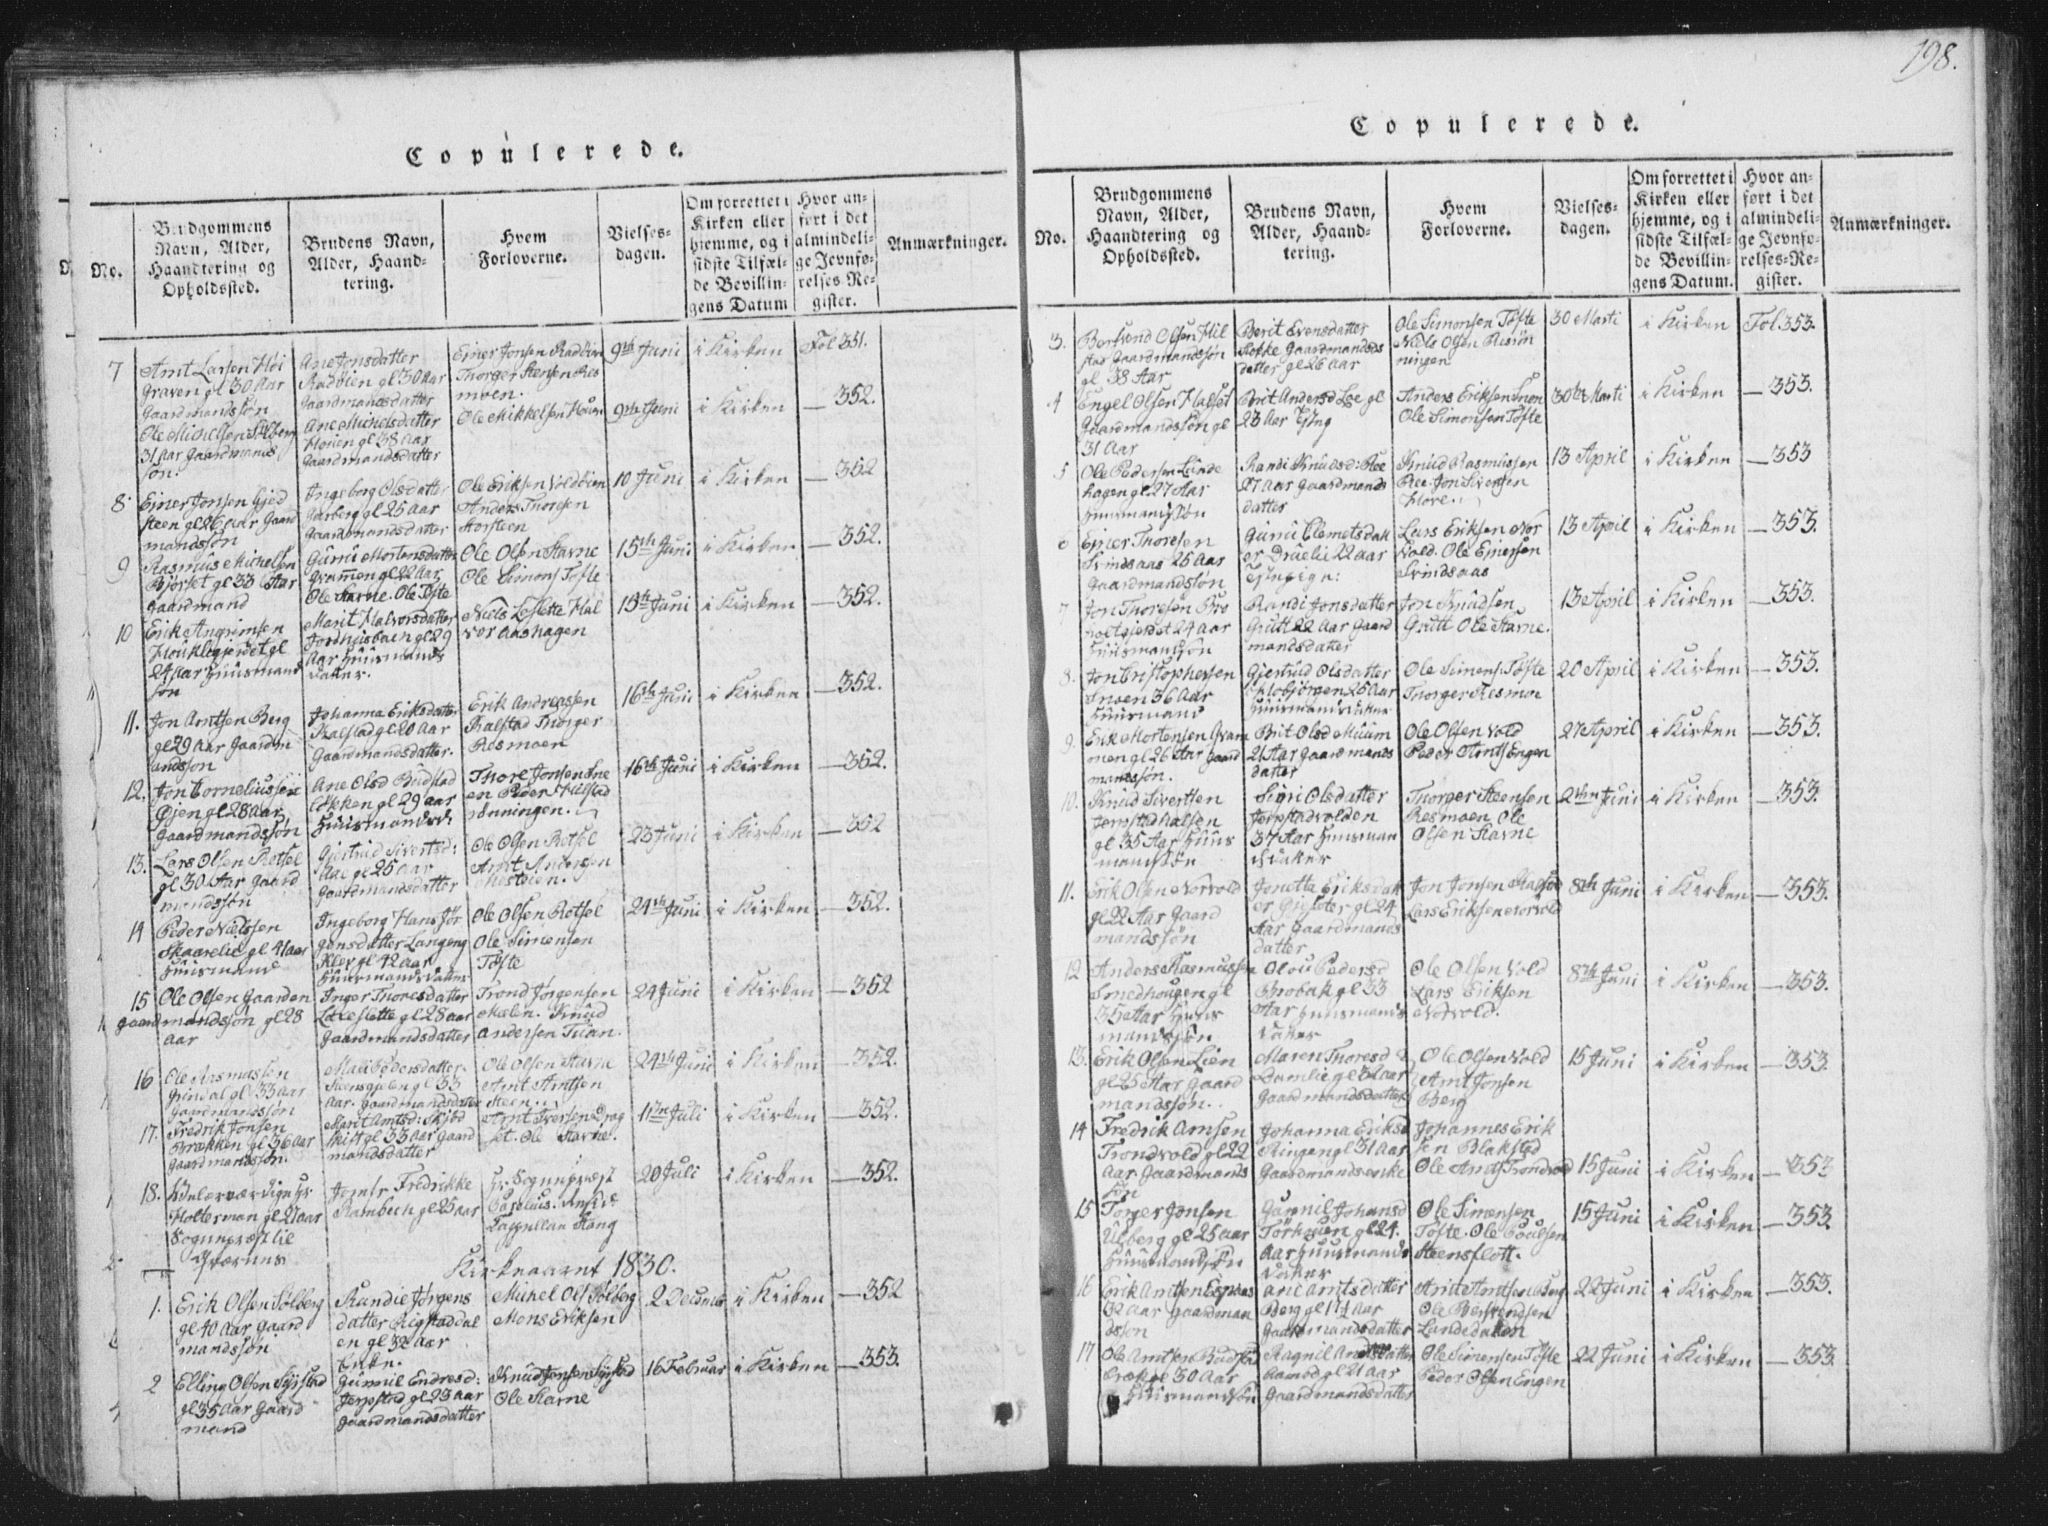 198.
Copulerede.
No.
Brudgommens
Navn, Alder,
Haandtering og
Opholdssted.
Brudens Navn,
Alder, Haand-
tering.
Hvem
Forloverne.
Vielses-
dagen.
Om forrettet i
Kirken eller
hjemme, og i
sidste Tilfæl-
de Bevillin-
gens Datum
Hvor an-
ført i det
almindeli-
ge Jevnfø-
relses-Re-
gister.
Anmærkninger.
7
Arnt Larsen Høi
graven gl 30 Aar
Gaardmandssøn
Ane Jonsdatter
Radøien gl 30 Aar
Gaardmandsdatter
Einer Jonsen Radøien
Thorger Stensen Res
moen.
9de Juni
i Kirken
Fol 351.
Ole Michelsen Sølberg
31 Aar Gaardmands
søn.
Ane Michelsdatter
gl 38 Aar
Gaardmandsdatter
Ole Mikkelsen
9de Juni
i Kirken
— 352.
8
Einer Jonsen Gjed
steen gl 26 Aar Gaard
mandssøn
Ingeborg Olsdatter
Garberg gl 25 Aar
Gaardmandsdatter
Ole Eriksen Voldøien
Anders Thoresen
10 Juni
i Kirken
— 352
9
Rasmus Michelsen
Bjørset gl 33 Aar
Gaardmand
Guru Mortensdatter
Grammen gl 22 Aar
Ole Starne. Ole Tøfte
Ole Olsen Starne
Ole Simons Tøfte
15th Juni
i Kirken
— 352.
10
Erik Angrimsen
gl
24 Aar Huusmand
søn
Marit Halvorsdatter
gl 29
Aar Huusmands
datter.
Niels Leslette Hal
vor Aashagen
15th Juni
i Kirken
— 352.
11.
Jon Arntsen Berg
gl 29 Aar Gaardm
andssøn
Johanna Eriksdatter
Kalstad gl 20 Aar
Gaardmandsdatter.
Erik Andreassen
Kalstad Thorger
Resmoen
16th Juni
i Kirken
— 352.
12.
Jon Cornelius søn
Øien gl 28 Aar
Gaardmandssøn
Ane Olsd Budstad
gl 29 Aar
Huusmandsd:
Thore Jonsen
en Peder
16th Juni
i Kirken
— 352.
13.
Lars Olsen Rotsel
gl 30 Aar Gaard
mandssøn
Gjertrud Sivertsd:
Aae gl 25 Aar
Gaardmandsdatter
Ole Olsen Rotsel
Arnt Andersen
23 Juni
i Kirken
— 352
14
Peder Nielssen
Skaarelie gl 41 Aar
Huusmand
Ingeborg Hans Jør
gensdatter Langeng
Klev gl 42 Aar
Huusmandsdatter
Ole Olsen Rotsel
Ole Simensen
Tøfte
24th Juni
i Kirken
— 352.
15
Ole Olsen Gaarden
gaardmandssøn gl 28
Aar
Inger Thoresdatter
gl 28 Aar
Gaardmandsdatter
Trond Jørgensen
Mælen. Knud
Andersen
24 Juni
i Kirken
— 352
16
Ole Rasmussen
Grindal gl 33 Aar
Gaardmandssøn
Mari Pedersdatter
gl 33
Aar. Gaardmandsdatter
Ole Olsen Starne
Arnt Arntsen
Steen
24th Juni
i Kirken
— 352.
17.
Fredrik Jonsen
Brækken gl 36 Aar
Gaardmandssøn.
Marit Arntsd:
gl 33 Aar Gaard
mandsdatter
Arnt Iversen Drag
set. Ole Starne.
11th Juli
i Kirken
— 352.
18.
Velærværdige Hr
Holterman gl 27 Aar
Sognepræst til
Qværnæs
Jomfr. Fredrikke
Rambech gl 25 Aar
Hr. Sognepræst
20 Juli
i Kirken
— 352.
Kirkeaaret 1830.
1.
Erik Olsen Sølberg
gl 40 Aar Gaard
mandssøn
Randie Jørgens
datter Rigstaddal
en gl 32 Aar
Enke.
Mikel Ols Sølberg
Mons Eriksen
2 Decembr
i Kirken
— 352
2
Elling Olsen Syrstad
gl 35 Aar Gaard
mand
Gunnil Endresd:
Jerpstad gl 23 Aar
Gaardmandsdatter
Knud Jonsen Syrstad
Ole Starne
16 Februar
i Kirken
— 353.
Copulerede.
No.
Brudgommens
Navn, Alder,
Haandtering og
Opholdssted.
Brudens Navn,
Alder, Haand-
tering.
Hvem
Forloverne.
Vielses-
dagen.
Om forrettet i
Kirken eller
hjemme, og i
sidste Tilfæl-
de Bevillin-
gens Datum.
Hvor an-
ført i det
almindeli-
ge Jevnfø-
relses-Re-
gister.
Anmærkninger.
3.
Bertend Olsen Hil
stad Gaardmandssøn
gl 38 Aar
Berit Evensdatter
Stokke Gaardmands
datter gl 26 Aar
Ole Simonsen Tøfte
Niels Olsen
30 Marti
i Kirken
Fol. 353.
4
Engel Olsen Halset
Gaardmandssøn gl
31 Aar
Brit Andersd Loe gl
23 Aar
Anders Eriksen Loe
Ole Simonsen Tøfte
30te Marti
i Kirken
— 353.
5
Ole Pedersen Lunde
hagen gl 27 Aar
Huusmandssøn
Randi Knudsd: Ree
27 Aar Gaardmands
datter
Knud Rasmussen
Ree. Jon Sivertsen
13 April
i Kirken
— 353
6
Einer Thoresen
Svindsaas 25 Aar
Gaardmandssøn
Guru Clemetsdatt
er Druelie 22 Aar
Lars Eriksen Nor
vold. Ole Einersen
Svindsaas
13 April
i Kirken
— 353.
7
Jon Thoresen Bro
holtgjerdet 24 Aar
Huusmandssøn
Randi Jonsdatter
Grutt 22 Aar Gaard
mandsdatter
Jon Knudsen
Grutt Ole Starne.
13 April
i Kirken
— 353.
8.
Jon Cristophersen
Smoen 36 Aar
Huusmand
Gjertrud Olsdatter
25 Aar
Huusmandsdatter
Ole Simens. Tøfte
Thorger Resmoe
20 April
i Kirken
— 353.
9.
Erik Mortensen Gram
men gl 26 Aar Gaard
mandssøn.
Brit Olsd Muum
21 Aar Gaardmands
datter
Ole Olsen Vold
Peder Arnts Engen
27 April
i Kirken
— 353.
10.
Knud Sivertsen
Jerpstadhalsen
gl 35 Aar Huus
mandssøn
Siuri Olsdatter
Jerpstadvolden
37 Aar Huusman
dsdatter
Thorger Steensen
Resmoen Ole
Olsen Starne
2den Juni
i Kirken
— 353.
11.
Erik Olsen Norvold
gl 22 Aar Gaard
mandssøn
Jonetta Eriksdatt
er gl 24
Aar Gaardmands
datter
Jon Jonsen
Lars Eriksen Norvold
8th Juni
i Kirken
— 353.
12
Anders Rasmussen
Smedhougen gl
35 Aar Huus
mandssøn
Olou Pedersd
Brobak gl 33
Aar Huusmands
datter
Ole Olsen Vold
Lars Eriksen
Norvold.
8th Juni
i Kirken
— 353.
13.
Erik Olsen Lien
gl 25 Aar Gaard
mandssøn.
Maren Thoresd
Damlie gl 32 Aar
Gaardmandsdatter
Ole Olsen Vold
Arnt Jonsen
Berg
15 Juni
i Kirken
— 353.
14
Fredrik Arnsen
Trondvold gl 22
Aar Gaardmands
søn
Johanna Eriksd
Ringen gl 31 Aar
Gaardmandsenke
Johannes Erik
sen Blakstad
Ole Arnts Trondvold
15 Juni
i Kirken
— 353
15
Torger Jonsen
Ulberg gl 25 Aar
Huusmandssøn
Gunnil Johansd
gl 24
Aar Huusmands
datter
Ole Simensen
Tøfte. Ole Poulsen
Steensflott.
15 Juni
i Kirken
— 353.
16
Erik Arntsen Espaas
32 Aar Gaardman
dssøn
Ane Arntsdatter
Berg gl 17½ Aar
Gaardmandsdatter
Arnt Arntsen Berg
Ole Bertendsen
Landedalen
22 Juni
i Kirken
— 353.
17
Ole Arntsen
gl 30 Aar
Huusmandssøn
Ragnil
gl 21 Aar
Gaardmandsdatter
Ole Simensen Tøfte
Peder Olsen Engen
22 Juni
i Kirken
— 353.